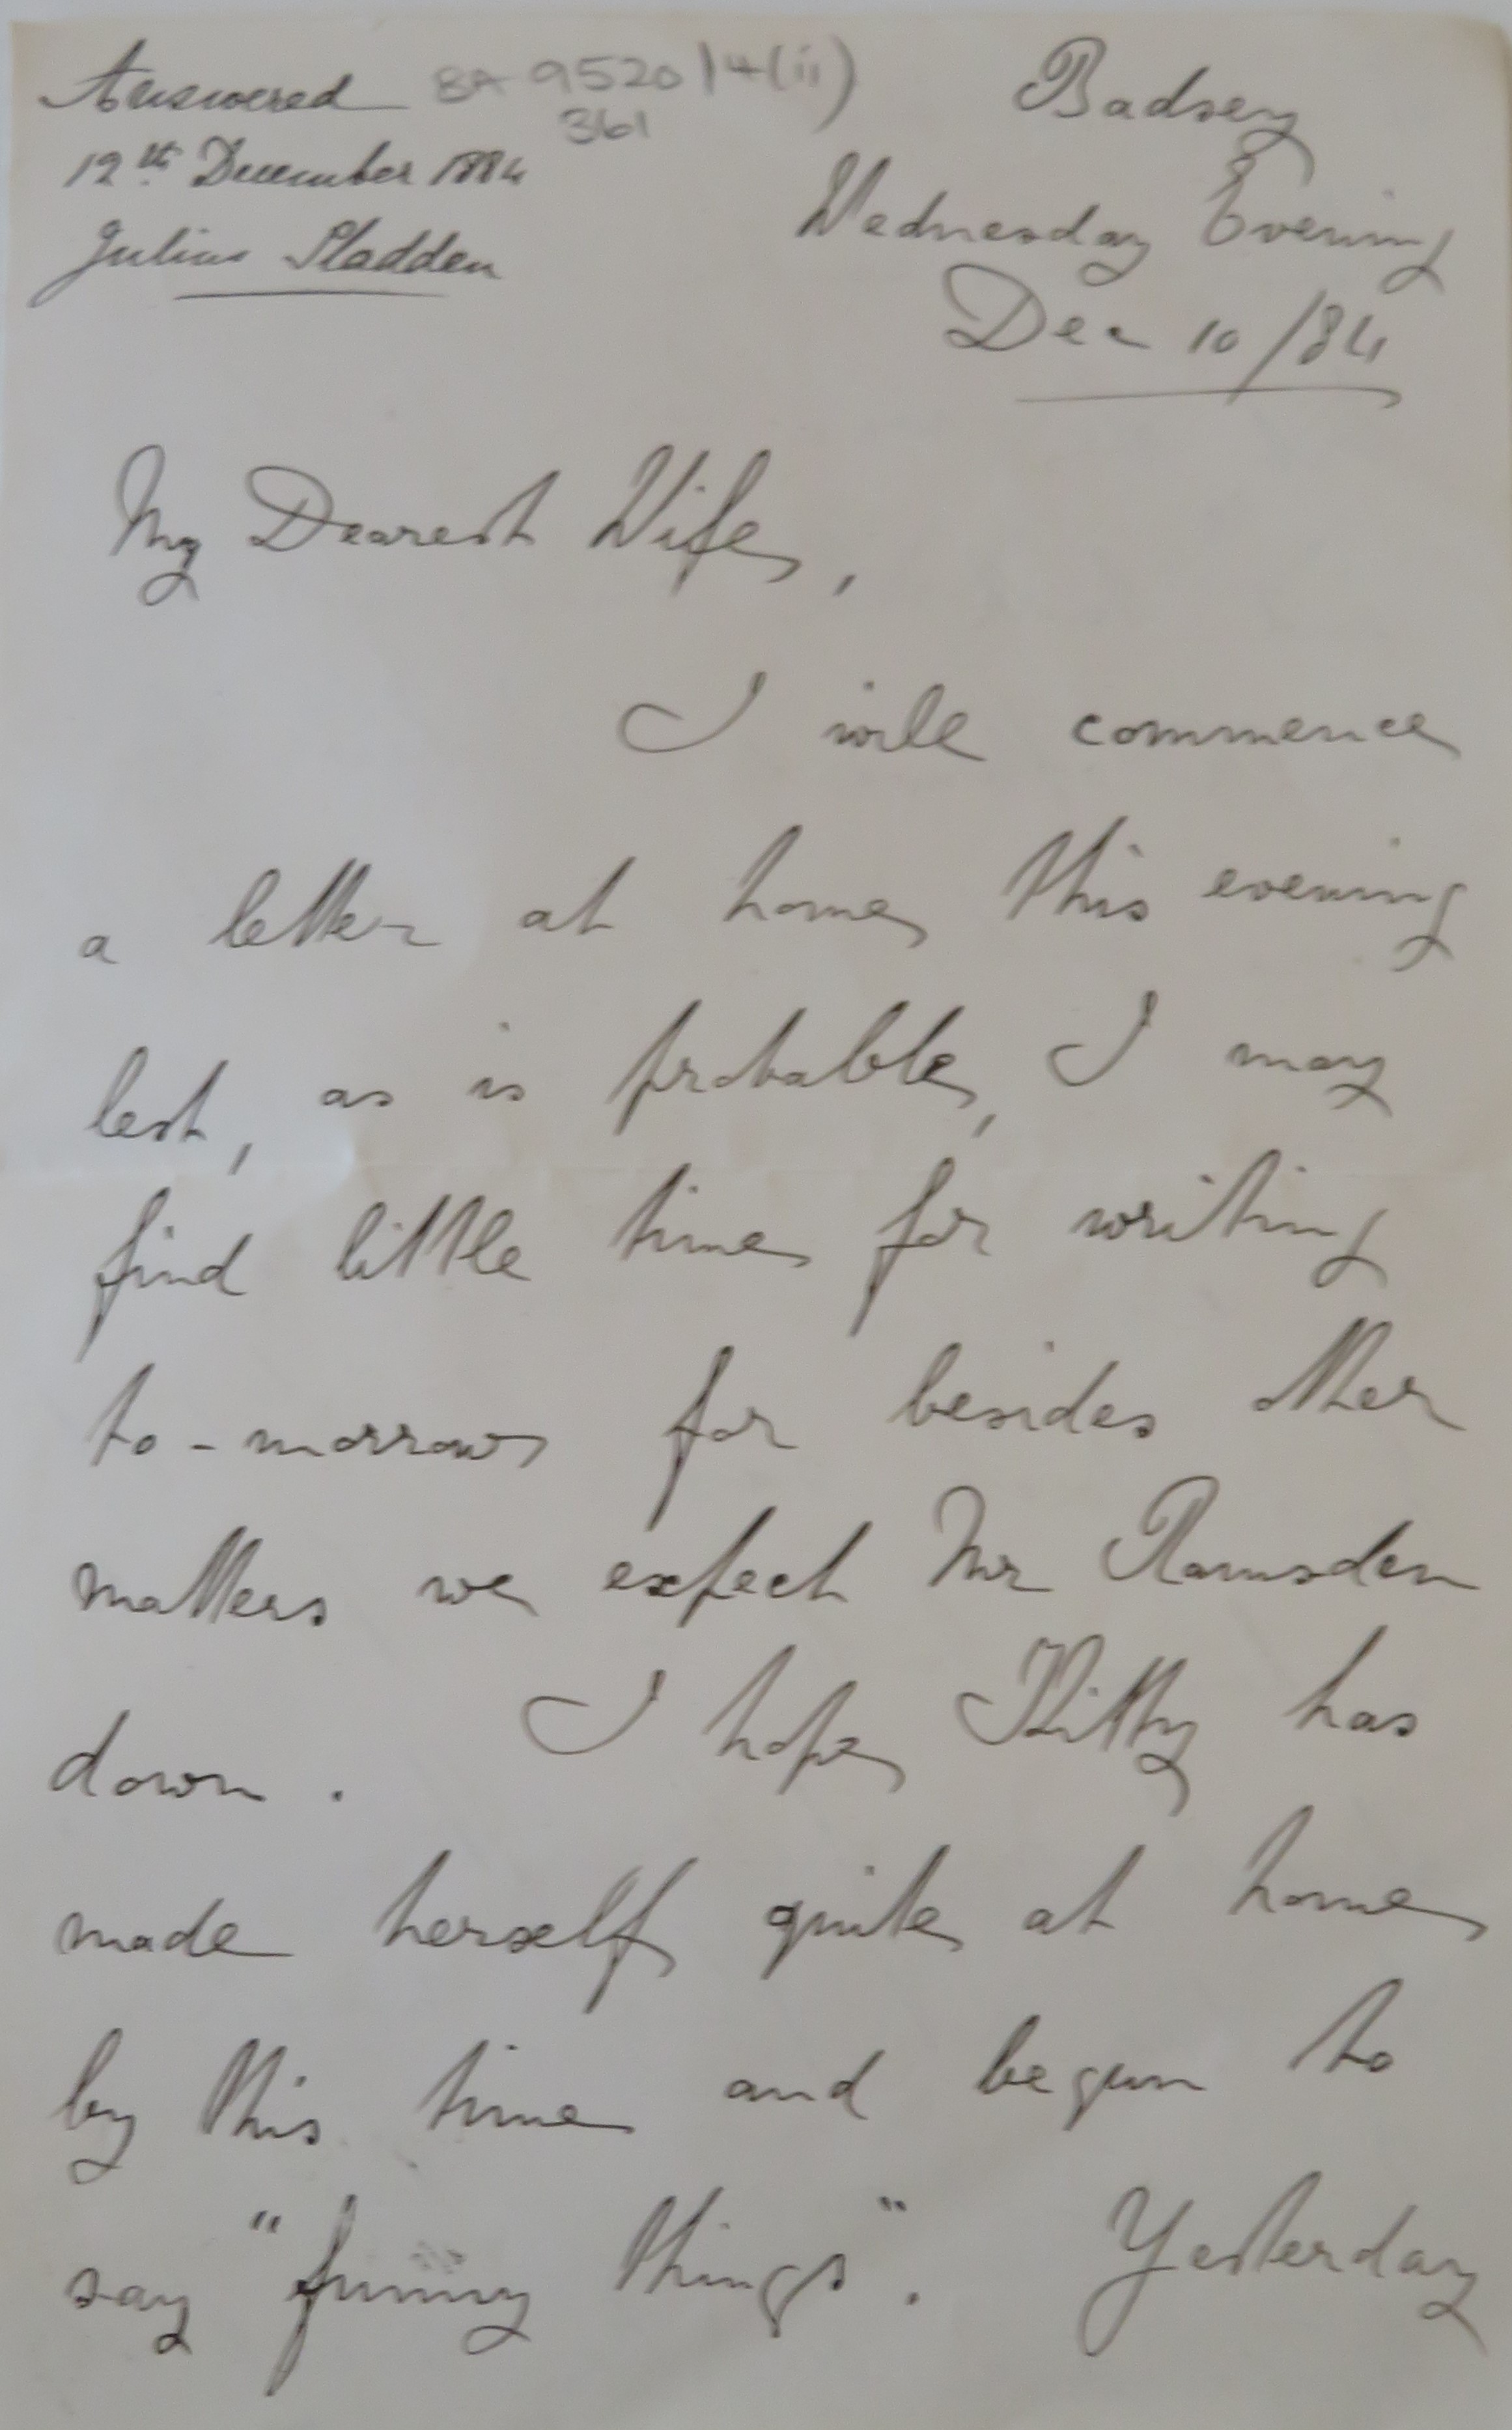 Answered
12th December 1884
Julius Sladden
BA 9520/4(ii)
361
Badsey
Wednesday Evening
Dec 10/84
My Dearest Wife,
I will commence
a letter at home this evening
lest, as is probable, I may
find little time for writing
to-morrow for besides other
matters we expect Mr Ramsden
down. I hope Kitty has
made herself quite at home
by this time and begun to
say "funny things". Yesterday